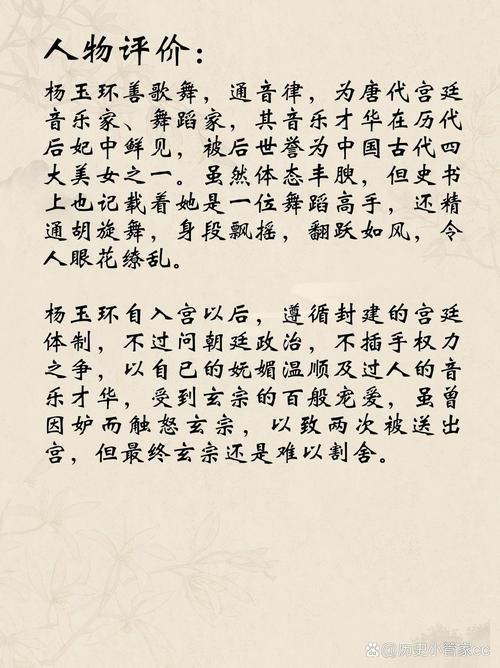 人物评价：
杨玉环善歌舞，通音律，为唐代宫廷
音乐家、舞蹈家，其音乐才华在历代
后妃中鲜见，被后世誉为中国古代四
大美女之一。虽然体态丰腴，但史书
上也记载着她是一位舞蹈高手，还精
通胡旋舞，身段飘摇，翻跃如风，令
人眼花缭乱。
杨玉环自入宫以后，遵循封建的宫廷
体制，不过问朝廷政治，不插手权力
之争，以自己的妩媚温顺及过人的音
乐才华，受到玄宗的百般宠爱，虽曾
因妒而触怒玄宗，以致两次被送出
宫，但最终玄宗还是难以割舍。
历史小管家cc